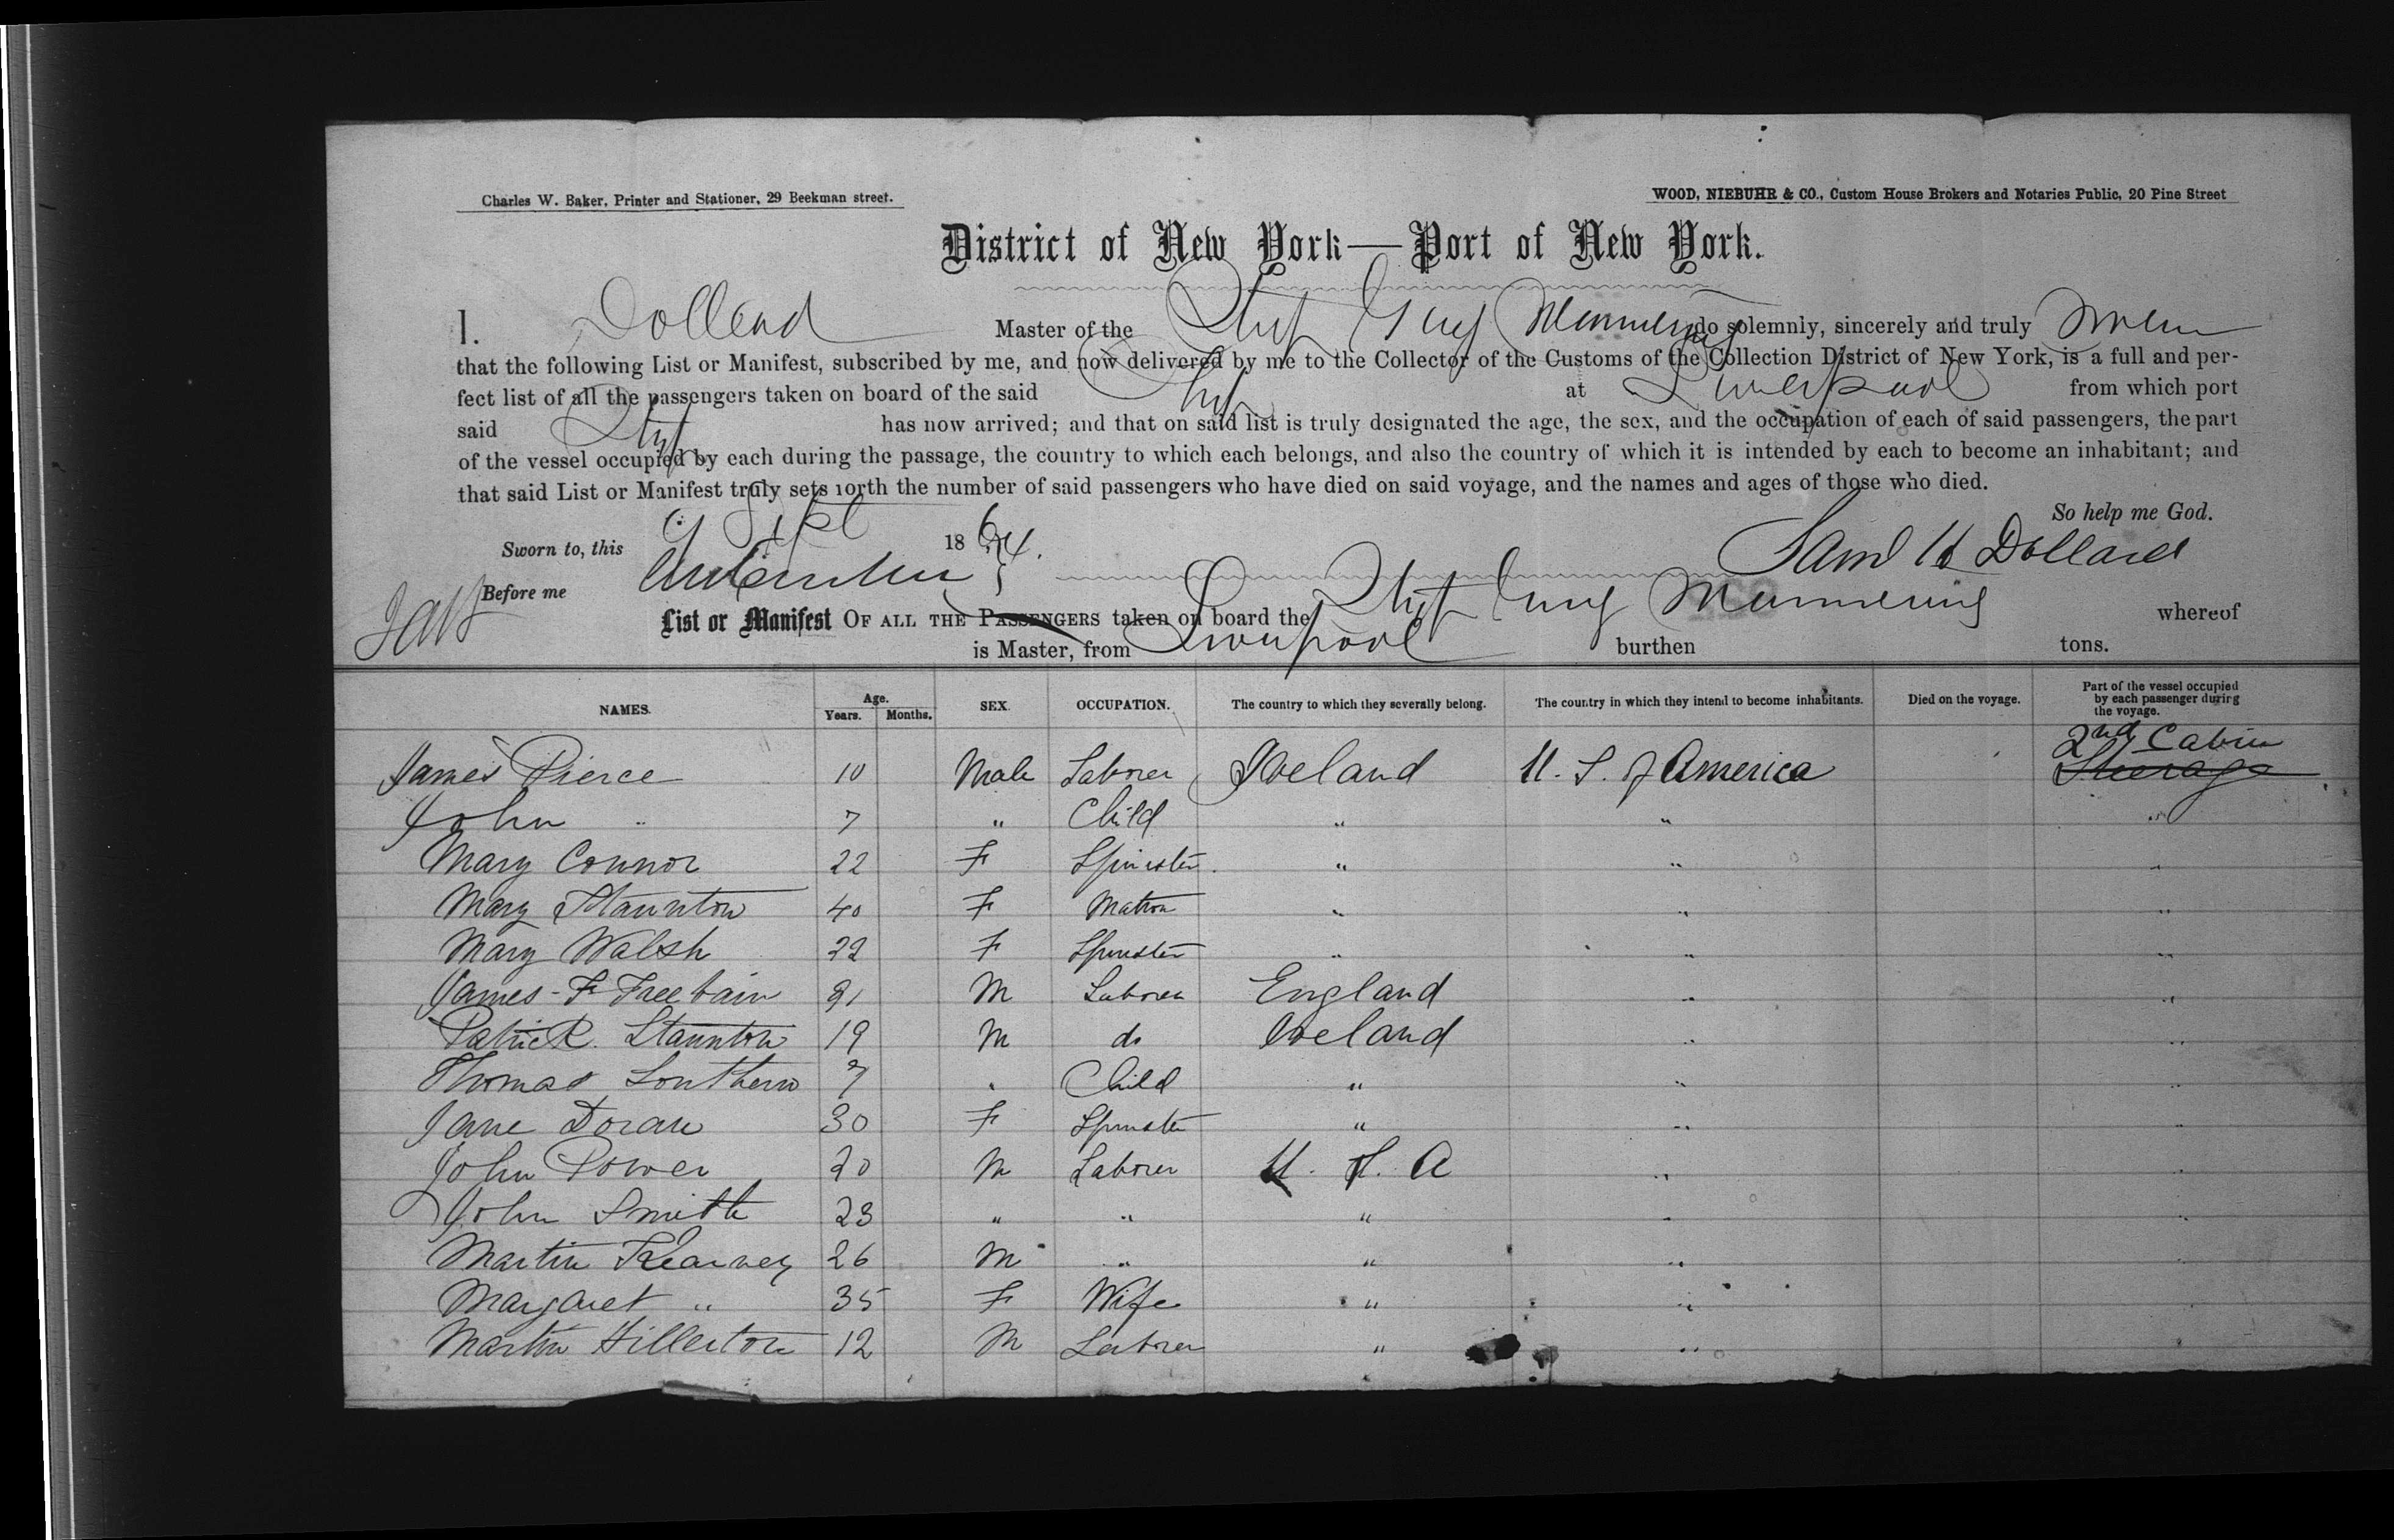 Charles W. Baker, Printer and Stationer, 29 Beekman street. WOOD, NIEBUHR & CO., Custom House Brokers and Notaries Public, 20 Pine Street
District of New York—Port of New York.
I. Dollard Master of the Ship Guy Mannering do solemnly, sincerely and truly swear
that the following List or Manifest, subscribed by me, and now delivered by me to the Collector of the Customs of the Collection District of New York, is a full and per-
fect list of all the passengers taken on board of the said Ship at Liverpool from which port
said Ship has now arrived; and that on said list is truly designated the age, the sex, and the occupation of each of said passengers, the part
of the vessel occupied by each during the passage, the country to which each belongs, and also the country of which it is intended by each to become an inhabitant; and
that said List or Manifest truly sets forth the number of said passengers who have died on said voyage, and the names and ages of those who died.
So help me God.
Sworn to, this Sept 1864. Saml H Dollard
Before me
List or Manifest OF ALL THE PASSENGERS taken on board the Ship Guy Mannering whereof
is Master, from Liverpool burthen tons.
NAMES. Age. Years. Months. SEX. OCCUPATION. The country to which they severally belong. The country in which they intend to become inhabitants. Died on the voyage. Part of the vessel occupied by each passenger during the voyage.
2nd Cabin
James Pierce 10 Male Laborer Ireland U. S. of America Steerage
John " 7 " Child " " "
Mary Connor 22 F Spinster " " "
Mary Staunton 40 F Matron " " "
Mary Walsh 22 F Spinster " " "
James F Freebairn 21 M Laborer England " "
Patrick Staunton 19 M do Ireland " "
Thomas Southern 7 " Child " " "
Jane Doran 30 F Spinster " " "
John Power 20 M Laborer U. S. A " "
John Smith 23 " " " " "
Martin Kearney 26 M " " " "
Margaret " 35 F Wife " " "
Martin Hillerton 12 M Laborer " " "